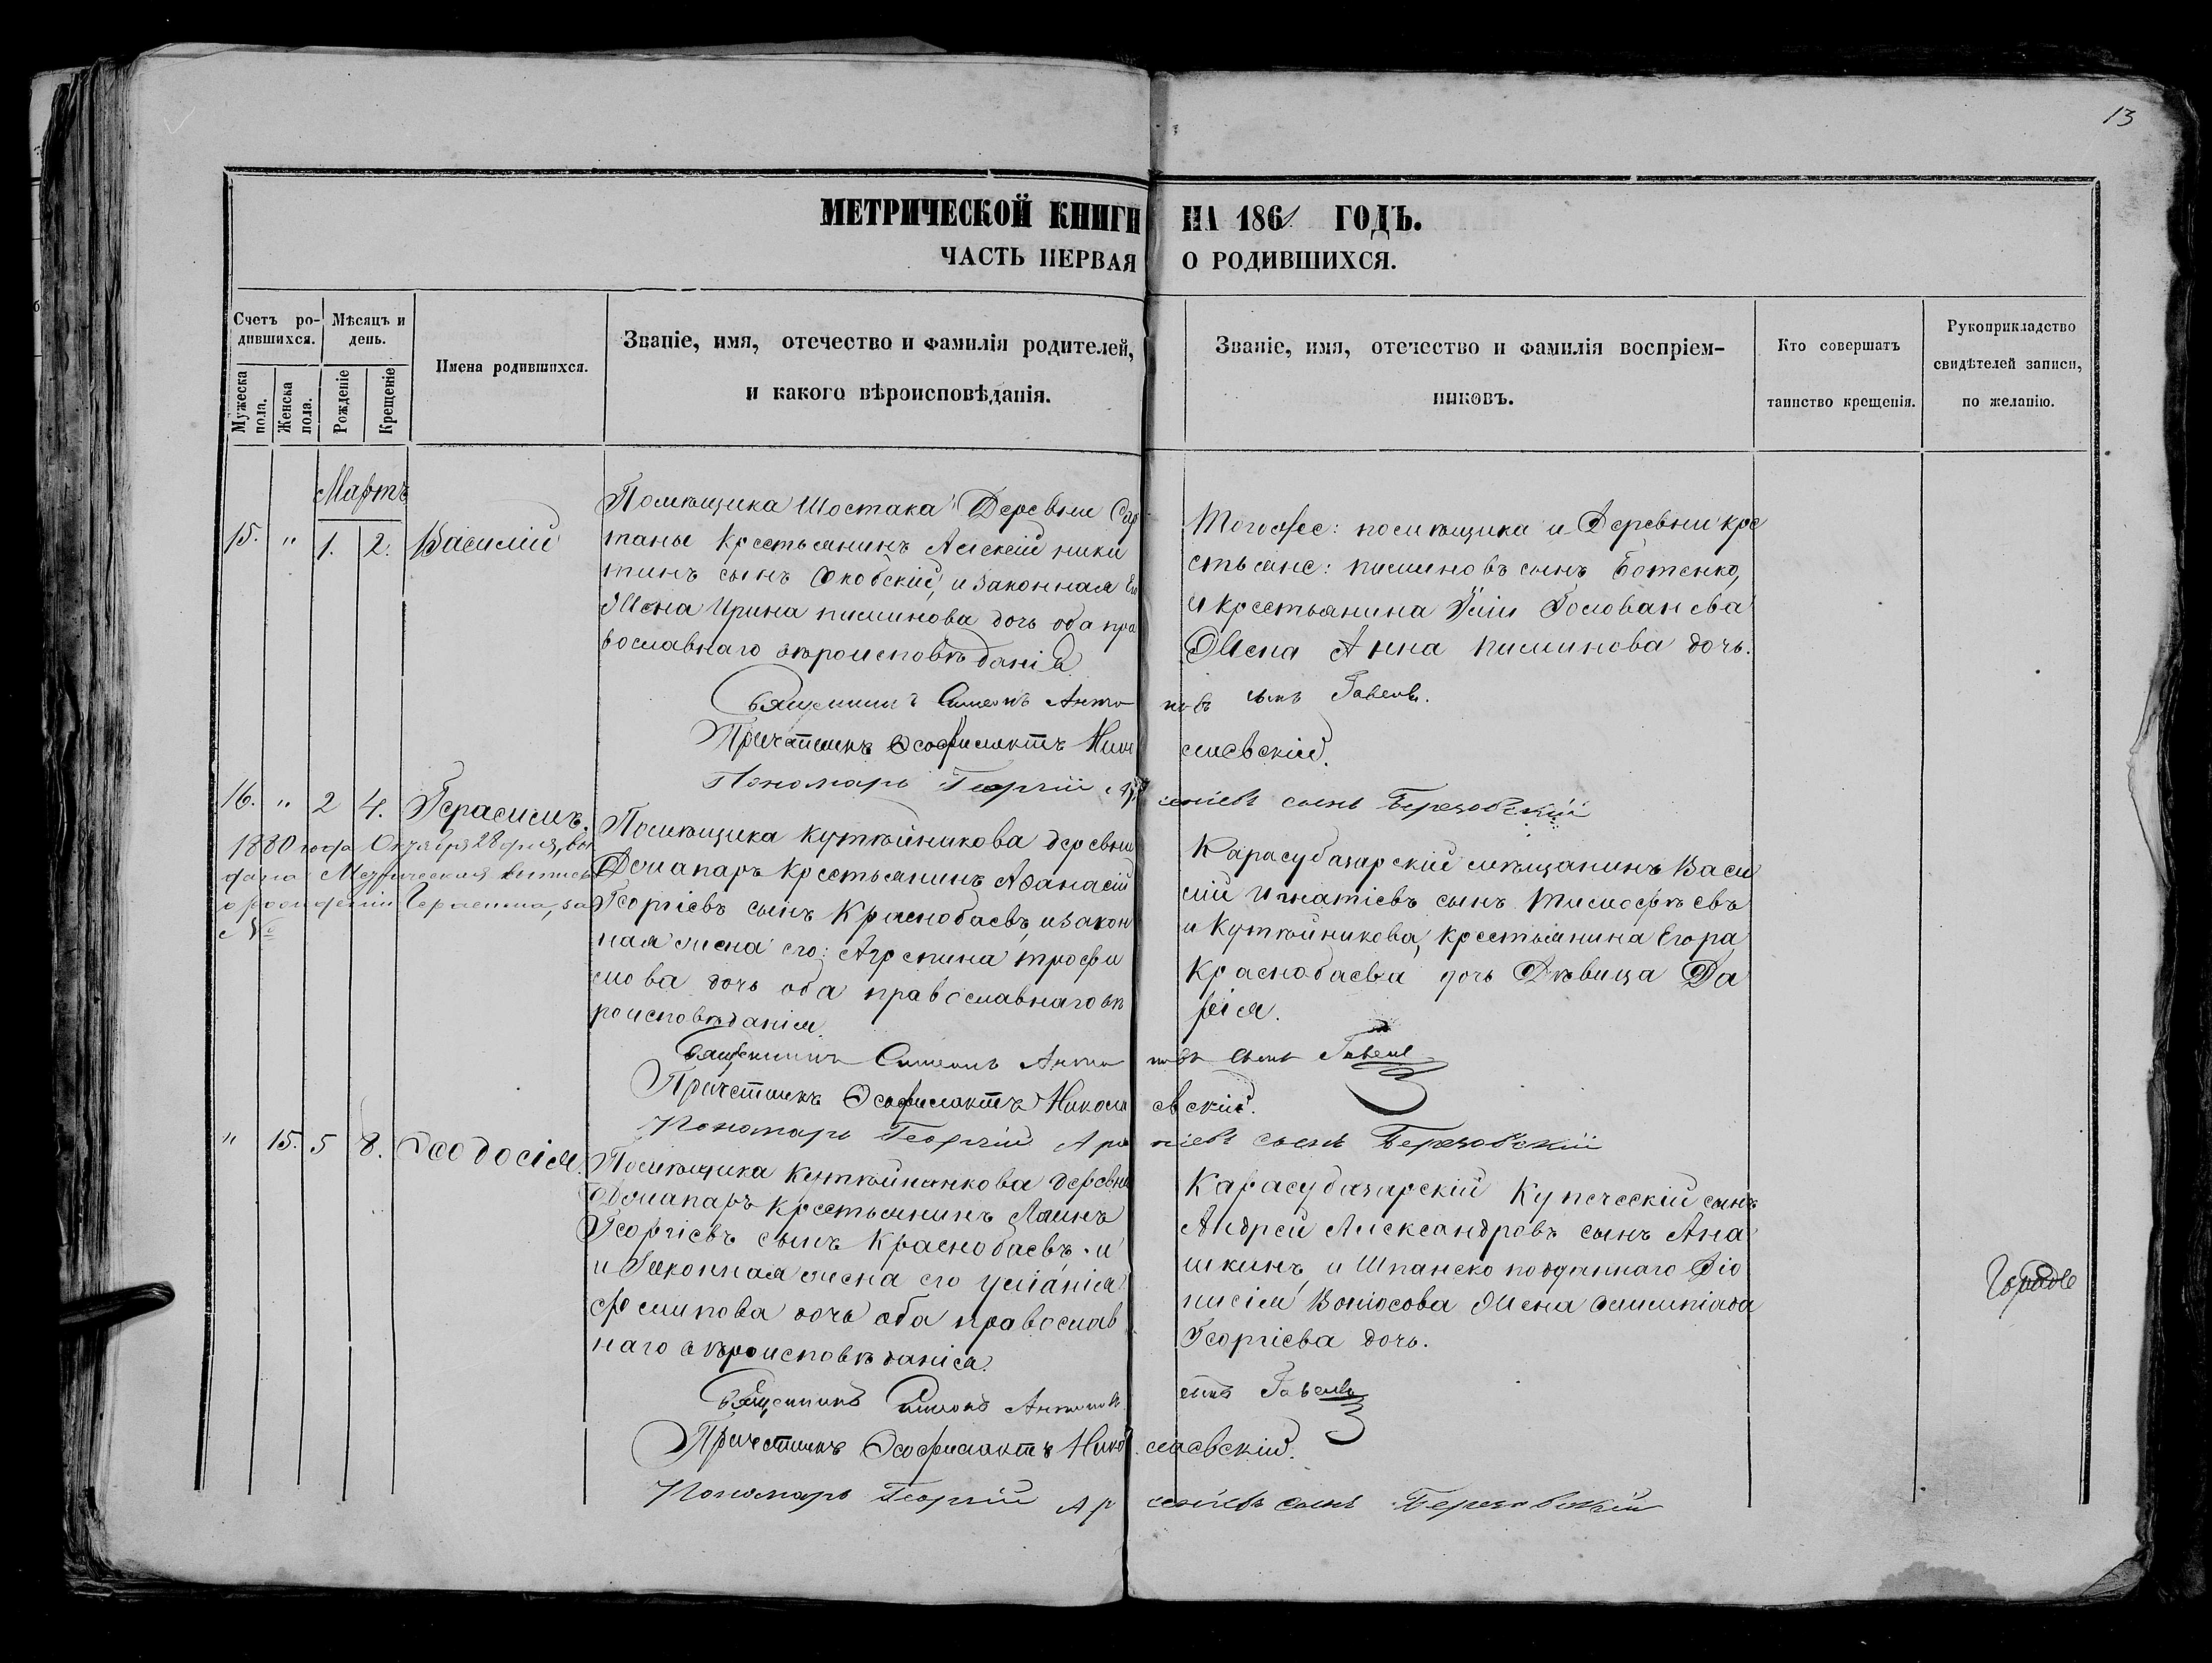 13
МЕТРИЧЕСКОЙ КНИГИ НА 1861 ГОДЪ.
ЧАСТЬ ПЕРВАЯ О РОДИВШИХСЯ.
Счетъ родившихся.
Мужеска пола.
Женска пола.
Мѣсяцъ и день.
Рожденіе
Крещеніе
Имена родившихся.
Званіе, имя, отечество и фамилія родителей,
и какого вѣроисповѣданія.
Званіе, имя, отечество и фамилія воспріем-
никовъ.
Кто совершатъ
таинство крещенія.
Рукоприкладство
свидѣтелей записи,
по желанію.
Мартъ
15. " 1. 2. Василій
Помѣщика Шостака Деревни Сар
таны Крестьянинъ Алексій ники
тинъ сынъ Скобскій, и законная Его
Жена Ирина пиминова дочь оба пра
вославнаго вѣроисповѣданія
Тогоже: помѣщика и Деревни кре
стьяне: пиминовъ сынъ Ботенко,
и крестьянина Голованева
Жена Анна пиминова дочь.
Священникъ Симеонъ Антоновъ сынъ Гавель.
Причетникъ Ѳеофилактъ Николаевскій.
Пономарь Георгій сынъ Березовскій
16. " 2 4. Герасимъ.
1880 года Октября 28 дня, вы
дана Метрическая выпись
о рожденіи Герасима, за
№
Помѣщика Кутѣйникова деревни
Джапаръ Крестьянинъ Аѳанасій
Георгіевъ сынъ Краснобаевъ, и закон
ная жена его: Агрепина трофи
мова дочь оба православнаго вѣ
роисповѣданія
Карасубазарскій мѣщанинъ Васи
лій Игнатіевъ сынъ Тимофѣевъ
и Кутѣйникова, Крестьянина Егора
Краснобаева дочь Дѣвица Да
рія.
Священникъ Симеонъ Антоновъ сынъ Гавель
Причетникъ Ѳеофилактъ Николаевскій.
Пономарь Георгій сынъ Березовскій
" 15. 5 8. Ѳеодосія.
Помѣщика Кутѣйникова деревни
Джапаръ Крестьянинъ
Георгіевъ сынъ Краснобаевъ, и
и Законная жена его Уліанія
Филипова дочь оба православ
наго вѣроисповѣданія.
Карасубазарскій Купеческій сынъ
Андрей Александровъ сынъ Ана
шкинъ, и Шпанско подданнаго Діо
нисія Воніосова Жена Олимпіада
Георгіева дочь.
Священникъ Симеонъ Антоновъ сынъ Гавель
Причетникъ Ѳеофилактъ Николаевскій.
Пономарь Георгій сынъ Березовскій